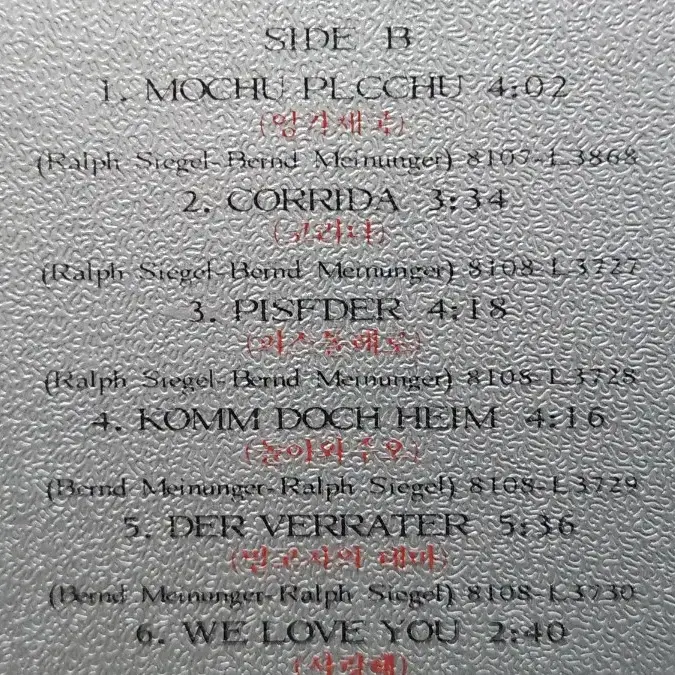 SIDE B
1. MOCHU PLCCHU 4:02
(Ralph Siegel-Bernd Meinunger) 8107-L3868
2. CORRIDA 3:34
(Ralph Siegel-Bernd Meinunger) 8108-L3727
3. PISFDER 4:18
(Ralph Siegel-Bernd Meinunger) 8108-L3728
4. KOMM DOCH HEIM 4:16
(돌아와 주오)
(Bernd Meinunger-Ralph Siegel) 8108-L3729
5. DER VERRATER 5:36
(Bernd Meinunger-Ralph Siegel) 8108-L3730
6. WE LOVE YOU 2:40